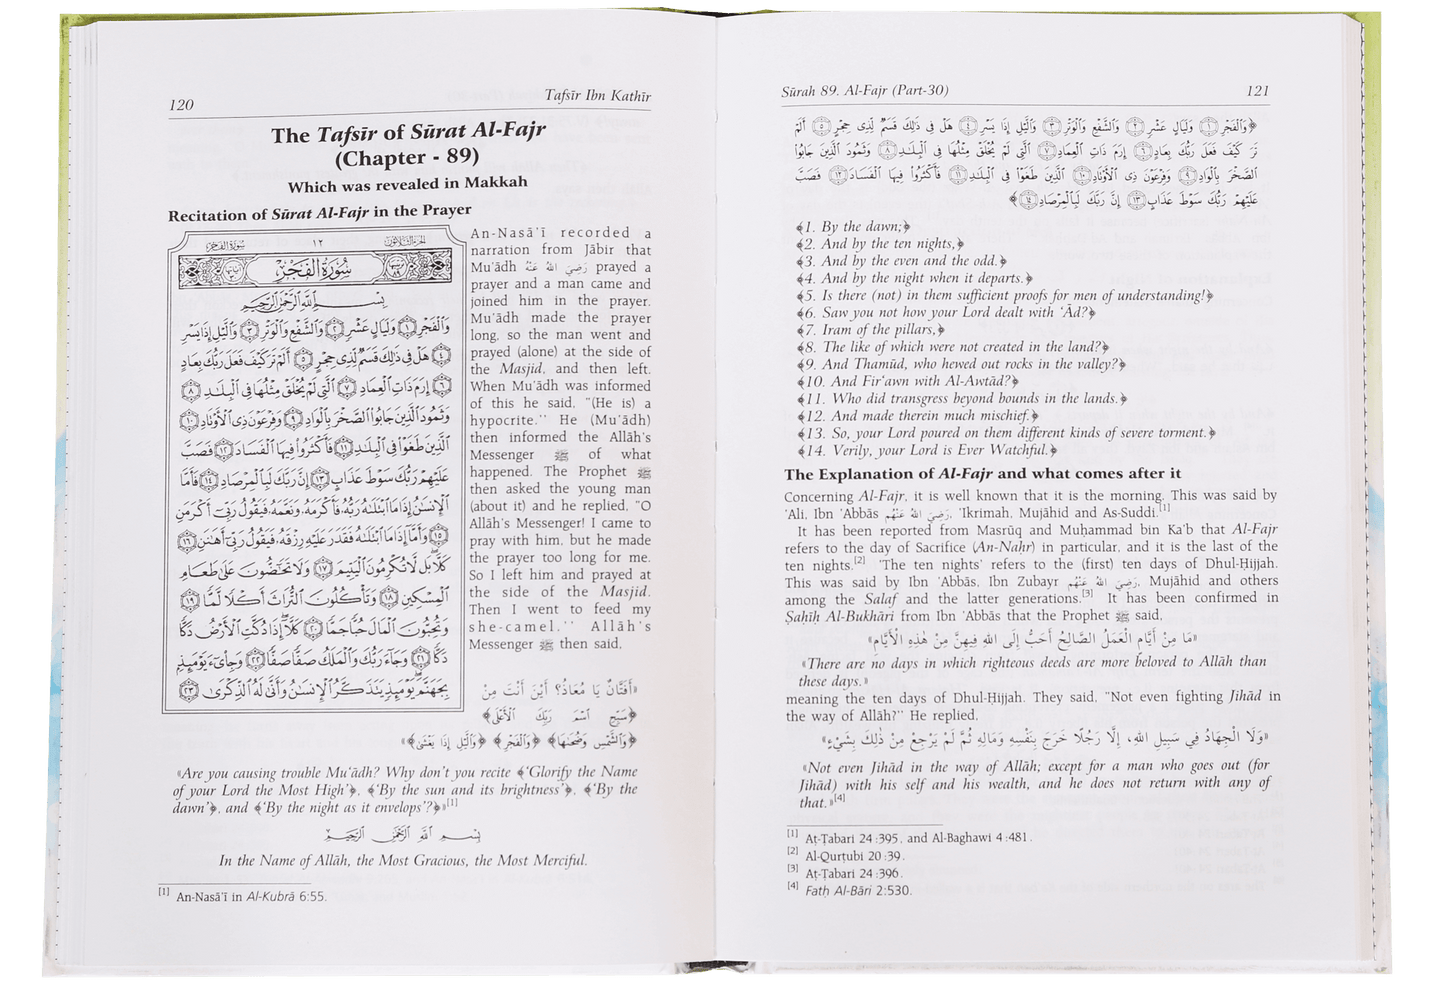 120
Tafsīr Ibn Kathīr
The Tafsīr of Sūrat Al-Fajr
(Chapter - 89)
Which was revealed in Makkah
Recitation of Sūrat Al-Fajr in the Prayer
الجزء الثلاثون
١٢
سورة الفجر
سُورَةُ الفَجْرِ
بِسْمِ اللَّهِ الرَّحْمَٰنِ الرَّحِيمِ
وَالْفَجْرِ ١ وَلَيَالٍ عَشْرٍ ٢ وَالشَّفْعِ وَالْوَتْرِ ٣ وَالَّيْلِ إِذَا يَسْرِ
٤ هَلْ فِي ذَٰلِكَ قَسَمٌ لِذِي حِجْرٍ ٥ أَلَمْ تَرَ كَيْفَ فَعَلَ رَبُّكَ بِعَادٍ
٦ إِرَمَ ذَاتِ الْعِمَادِ ٧ الَّتِي لَمْ يُخْلَقْ مِثْلُهَا فِي الْبِلَادِ ٨
وَثَمُودَ الَّذِينَ جَابُوا الصَّخْرَ بِالْوَادِ ٩ وَفِرْعَوْنَ ذِي الْأَوْتَادِ ١٠
الَّذِينَ طَغَوْا فِي الْبِلَادِ ١١ فَأَكْثَرُوا فِيهَا الْفَسَادَ ١٢ فَصَبَّ
عَلَيْهِمْ رَبُّكَ سَوْطَ عَذَابٍ ١٣ إِنَّ رَبَّكَ لَبِالْمِرْصَادِ ١٤ فَأَمَّا
الْإِنسَانُ إِذَا مَا ابْتَلَاهُ رَبُّهُ فَأَكْرَمَهُ وَنَعَّمَهُ فَيَقُولُ رَبِّي أَكْرَمَنِ
١٥ وَأَمَّا إِذَا مَا ابْتَلَاهُ فَقَدَرَ عَلَيْهِ رِزْقَهُ فَيَقُولُ رَبِّي أَهَانَنِ ١٦
كَلَّا بَل لَّا تُكْرِمُونَ الْيَتِيمَ ١٧ وَلَا تَحَاضُّونَ عَلَىٰ طَعَامِ
الْمِسْكِينِ ١٨ وَتَأْكُلُونَ التُّرَاثَ أَكْلًا لَّمًّا ١٩
وَتُحِبُّونَ الْمَالَ حُبًّا جَمًّا ٢٠ كَلَّا إِذَا دُكَّتِ الْأَرْضُ دَكًّا
دَكًّا ٢١ وَجَاءَ رَبُّكَ وَالْمَلَكُ صَفًّا صَفًّا ٢٢ وَجِاْيٓءَ يَوْمَئِذٍ
بِجَهَنَّمَ يَوْمَئِذٍ يَتَذَكَّرُ الْإِنسَانُ وَأَنَّىٰ لَهُ الذِّكْرَىٰ ٢٣
An-Nasā'ī recorded a
narration from Jābir that
Mu'ādh رَضِيَ اللهُ عَنْهُ prayed a
prayer and a man came and
joined him in the prayer.
Mu'ādh made the prayer
long, so the man went and
prayed (alone) at the side of
the Masjid, and then left.
When Mu'ādh was informed
of this he said, "(He is) a
hypocrite." He (Mu'ādh)
then informed the Allāh's
Messenger ﷺ of what
happened. The Prophet ﷺ
then asked the young man
(about it) and he replied, "O
Allāh's Messenger! I came to
pray with him, but he made
the prayer too long for me.
So I left him and prayed at
the side of the Masjid.
Then I went to feed my
she-camel." Allāh's
Messenger ﷺ then said,
«أَفَتَّانٌ يَا مُعَاذُ؟ أَيْنَ أَنْتَ مِنْ
﴿سَبِّحِ اسْمَ رَبِّكَ الْأَعْلَى﴾
﴿وَالشَّمْسِ وَضُحَاهَا﴾ ﴿وَالْفَجْرِ﴾ ﴿وَالَّيْلِ إِذَا يَغْشَى﴾»
«Are you causing trouble Mu'ādh? Why don't you recite ﴾'Glorify the Name
of your Lord the Most High'﴿, ﴾'By the sun and its brightness'﴿, ﴾'By the
dawn'﴿, and ﴾'By the night as it envelops'?﴿»[1]
بِسْمِ اللَّهِ الرَّحْمَٰنِ الرَّحِيمِ
In the Name of Allāh, the Most Gracious, the Most Merciful.
[1] An-Nasā'ī in Al-Kubrā 6:55.
Sūrah 89. Al-Fajr (Part-30)
121
﴿وَالْفَجْرِ ١ وَلَيَالٍ عَشْرٍ ٢ وَالشَّفْعِ وَالْوَتْرِ ٣ وَالَّيْلِ إِذَا يَسْرِ ٤ هَلْ فِي ذَٰلِكَ قَسَمٌ لِذِي حِجْرٍ ٥ أَلَمْ
تَرَ كَيْفَ فَعَلَ رَبُّكَ بِعَادٍ ٦ إِرَمَ ذَاتِ الْعِمَادِ ٧ الَّتِي لَمْ يُخْلَقْ مِثْلُهَا فِي الْبِلَادِ ٨ وَثَمُودَ الَّذِينَ جَابُوا
الصَّخْرَ بِالْوَادِ ٩ وَفِرْعَوْنَ ذِي الْأَوْتَادِ ١٠ الَّذِينَ طَغَوْا فِي الْبِلَادِ ١١ فَأَكْثَرُوا فِيهَا الْفَسَادَ ١٢ فَصَبَّ
عَلَيْهِمْ رَبُّكَ سَوْطَ عَذَابٍ ١٣ إِنَّ رَبَّكَ لَبِالْمِرْصَادِ ١٤﴾
﴾1. By the dawn;﴿
﴾2. And by the ten nights,﴿
﴾3. And by the even and the odd.﴿
﴾4. And by the night when it departs.﴿
﴾5. Is there (not) in them sufficient proofs for men of understanding!﴿
﴾6. Saw you not how your Lord dealt with 'Ād?﴿
﴾7. Iram of the pillars,﴿
﴾8. The like of which were not created in the land?﴿
﴾9. And Thamūd, who hewed out rocks in the valley?﴿
﴾10. And Fir'awn with Al-Awtād?﴿
﴾11. Who did transgress beyond bounds in the lands.﴿
﴾12. And made therein much mischief.﴿
﴾13. So, your Lord poured on them different kinds of severe torment.﴿
﴾14. Verily, your Lord is Ever Watchful.﴿
The Explanation of Al-Fajr and what comes after it
Concerning Al-Fajr, it is well known that it is the morning. This was said by
'Ali, Ibn 'Abbās رَضِيَ اللهُ عَنْهُم, 'Ikrimah, Mujāhid and As-Suddi.[1]
It has been reported from Masrūq and Muḥammad bin Ka'b that Al-Fajr
refers to the day of Sacrifice (An-Naḥr) in particular, and it is the last of the
ten nights.[2] 'The ten nights' refers to the (first) ten days of Dhul-Ḥijjah.
This was said by Ibn 'Abbās, Ibn Zubayr رَضِيَ اللهُ عَنْهُم, Mujāhid and others
among the Salaf and the latter generations.[3] It has been confirmed in
Ṣaḥīḥ Al-Bukhāri from Ibn 'Abbās that the Prophet ﷺ said,
«مَا مِنْ أَيَّامٍ الْعَمَلُ الصَّالِحُ أَحَبُّ إِلَى اللهِ فِيهِنَّ مِنْ هَٰذِهِ الْأَيَّامِ»
«There are no days in which righteous deeds are more beloved to Allāh than
these days.»
meaning the ten days of Dhul-Ḥijjah. They said, "Not even fighting Jihād in
the way of Allāh?" He replied,
«وَلَا الْجِهَادُ فِي سَبِيلِ اللهِ، إِلَّا رَجُلًا خَرَجَ بِنَفْسِهِ وَمَالِهِ ثُمَّ لَمْ يَرْجِعْ مِنْ ذَٰلِكَ بِشَيْءٍ»
«Not even Jihād in the way of Allāh; except for a man who goes out (for
Jihād) with his self and his wealth, and he does not return with any of
that.»[4]
[1] Aṭ-Ṭabari 24:395, and Al-Baghawi 4:481.
[2] Al-Qurṭubi 20:39.
[3] Aṭ-Ṭabari 24:396.
[4] Fatḥ Al-Bāri 2:530.